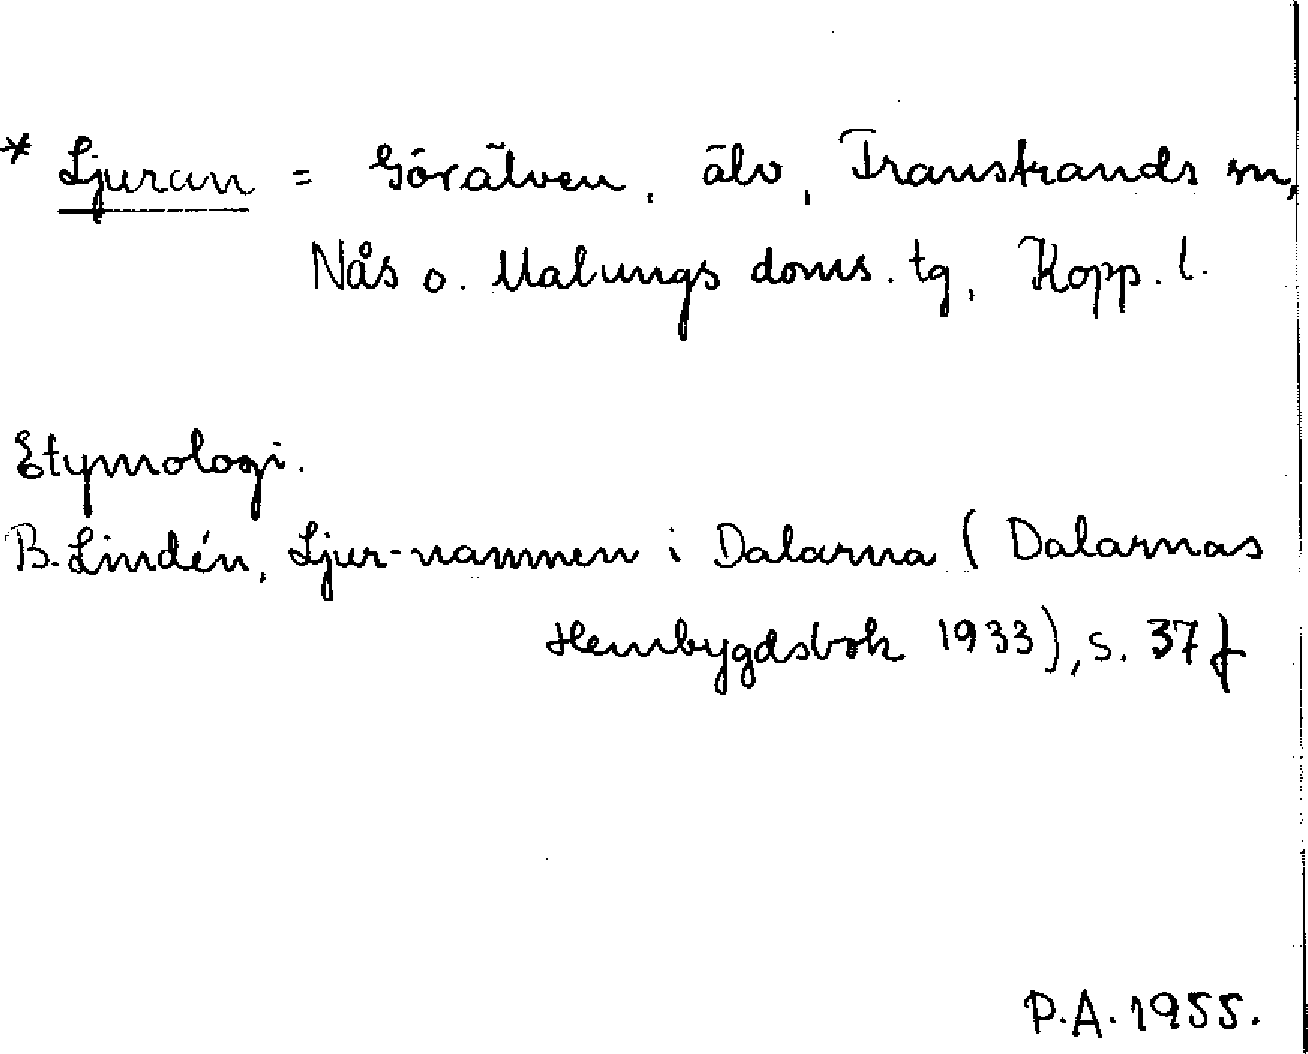 * Ljuran = Görälven, älv, Transtrands sn,
Nås o. Malungs doms. tg, Kopp. l.
Etymologi.
B. Lindén, Ljur-namnen i Dalarna (Dalarnas
Hembygdsbok 1933), s. 37 f
P.A. 1955.